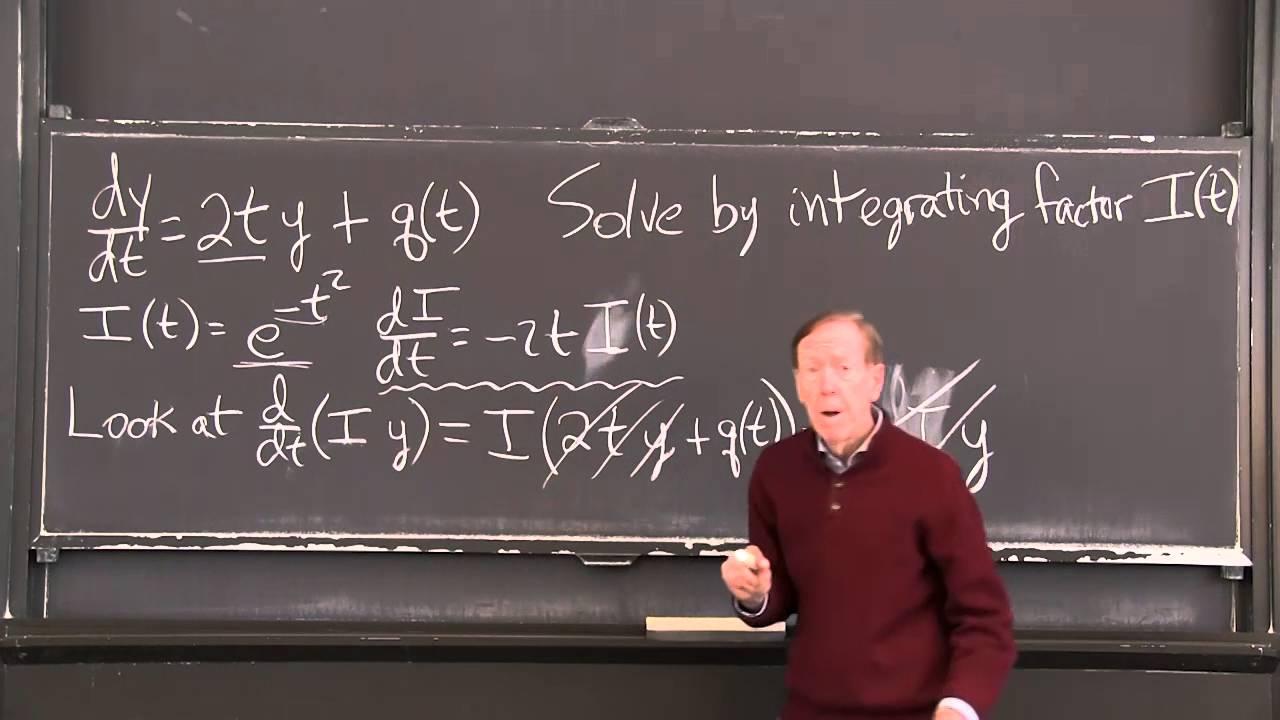 dy/dt = 2t y + q(t) Solve by integrating factor I(t)
I(t) = e^{-t^2} dI/dt = -2t I(t)
Look at d/dt (I y) = I (2t y + q(t)) y